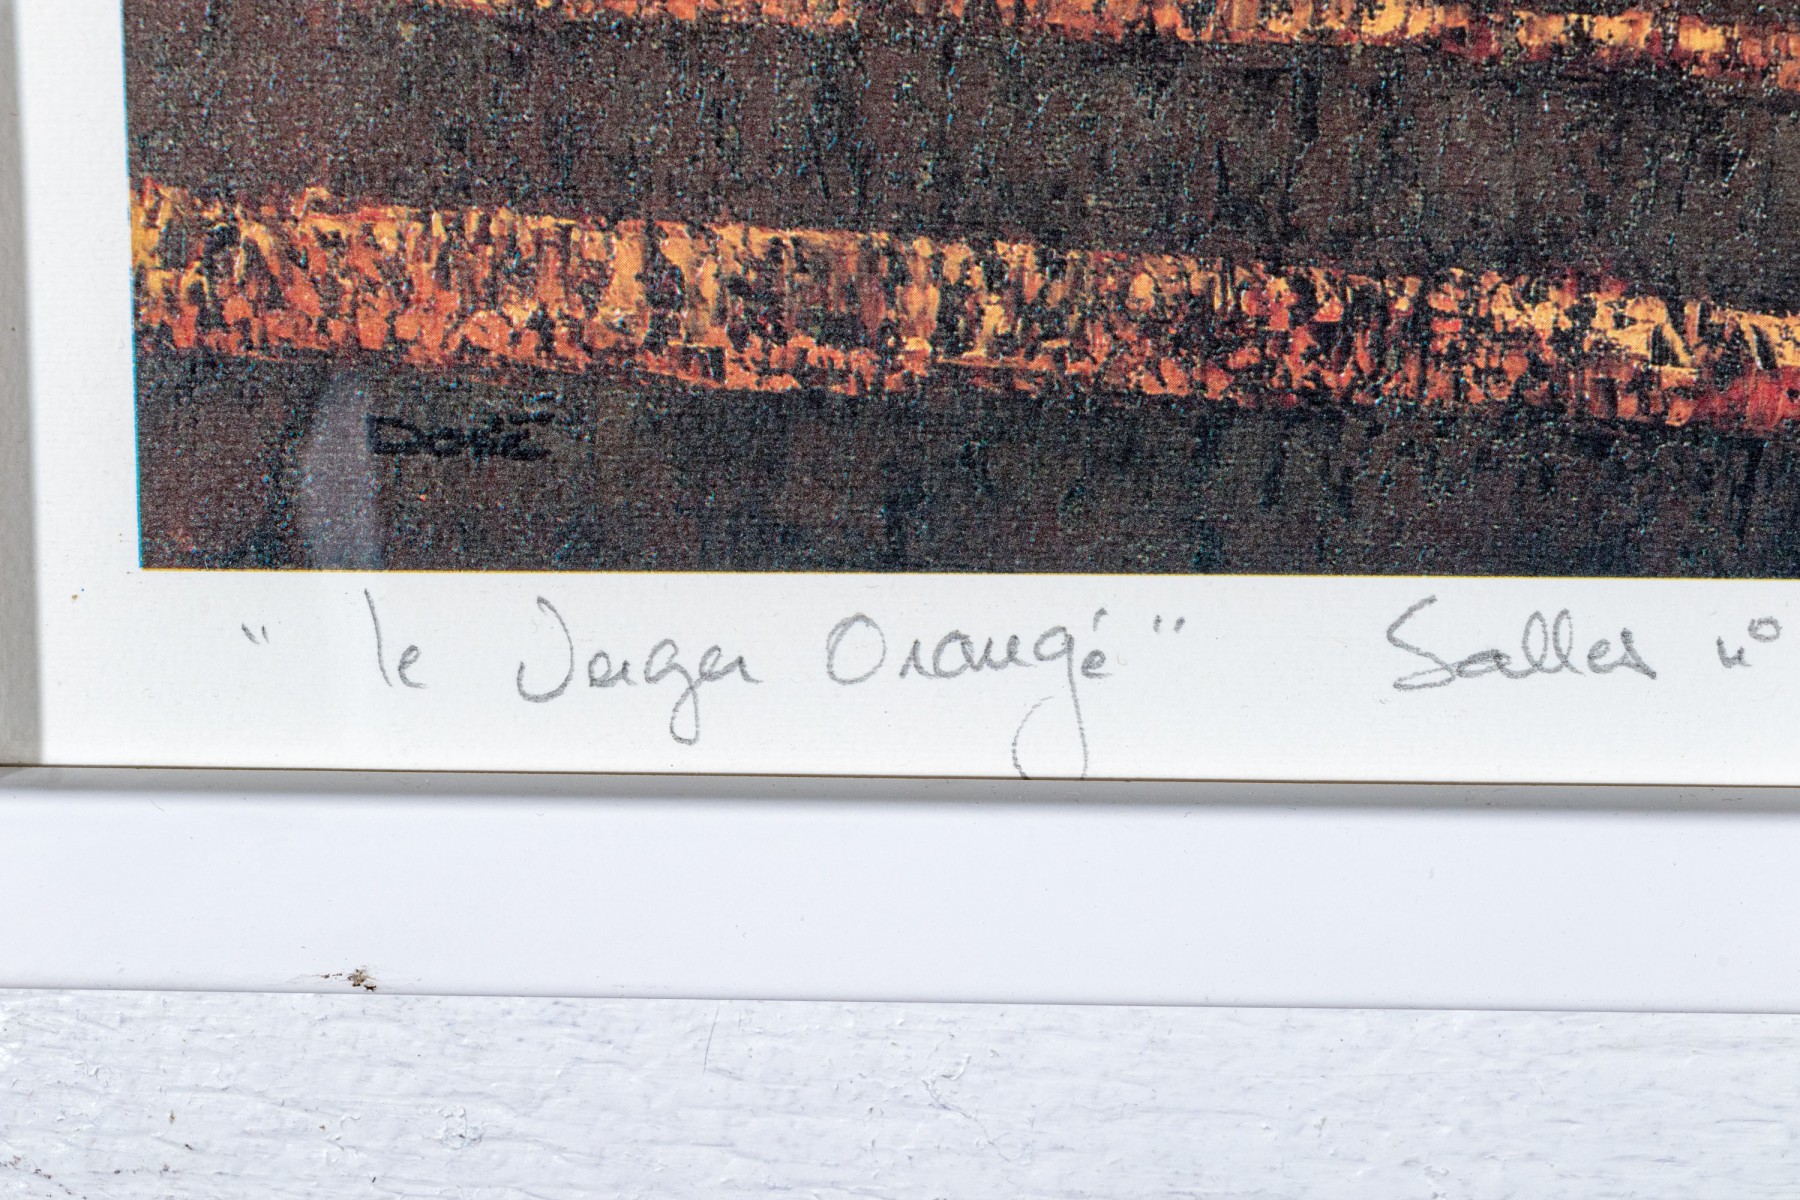 Doré
" le Verger Orangé " Salles n°